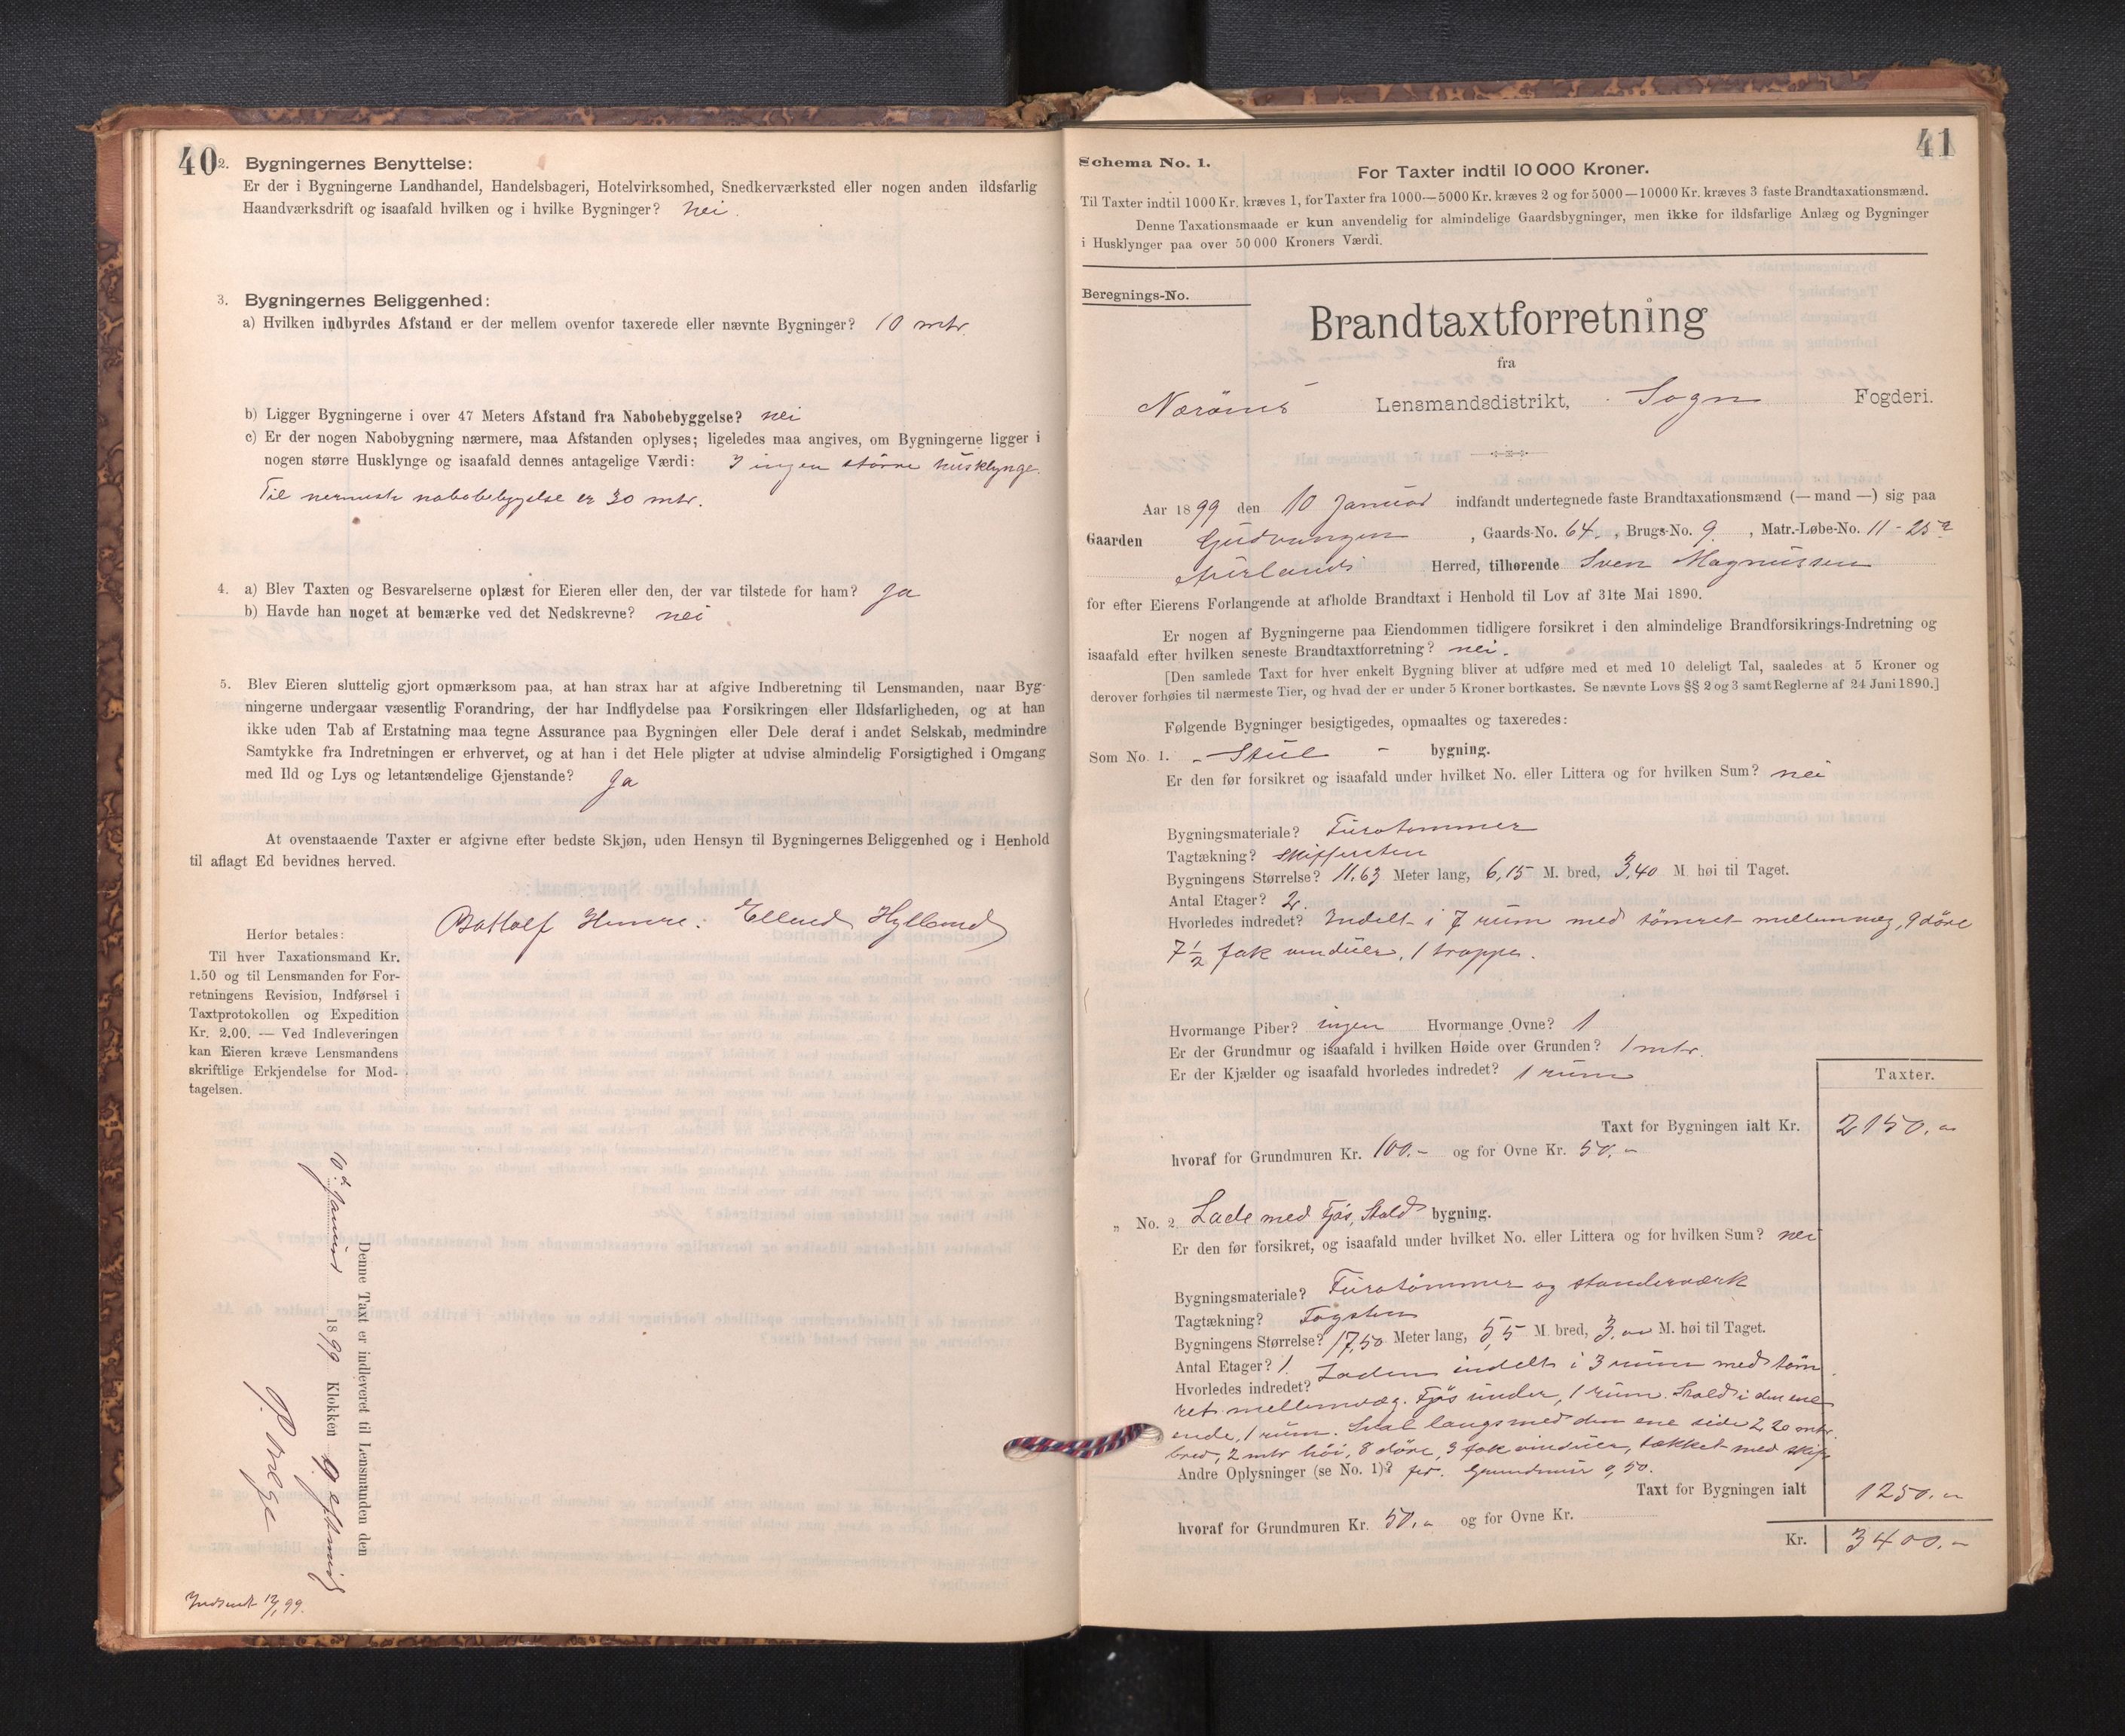 40
2. Bygningernes Benyttelse:
Er der i Bygningerne Landhandel, Handelsbageri, Hotelvirksomhed, Snedkerværksted eller nogen anden ildsfarlig
Haandværksdrift og isaafald hvilken og i hvilke Bygninger? Nei.
3. Bygningernes Beliggenhed:
a) Hvilken indbyrdes Afstand er der mellem ovenfor taxerede eller nævnte Bygninger? 10 mtr.
b) Ligger Bygningerne i over 47 Meters Afstand fra Nabobebyggelse? nei
c) Er der nogen Nabobygning nærmere, maa Afstanden oplyses; ligeledes maa angives, om Bygningerne ligger i
nogen større Husklynge og isaafald dennes antagelige Værdi: I ingen större husklynge.
Til nermeste nabobebyggelse er 30 mtr.
4. a) Blev Taxten og Besvarelserne oplæst for Eieren eller den, der var tilstede for ham? Ja
b) Havde han noget at bemærke ved det Nedskrevne? nei
5. Blev Eieren sluttelig gjort opmærksom paa, at han strax har at afgive Indberetning til Lensmanden, naar Byg-
ningerne undergaar væsentlig Forandring, der har Indflydelse paa Forsikringen eller Ildsfarligheden, og at han
ikke uden Tab af Erstatning maa tegne Assurance paa Bygningen eller Dele deraf i andet Selskab, medmindre
Samtykke fra Indretningen er erhvervet, og at han i det Hele pligter at udvise almindelig Forsigtighed i Omgang
med Ild og Lys og letantændelige Gjenstande? Ja
At ovenstaaende Taxter er afgivne efter bedste Skjøn, uden Hensyn til Bygningernes Beliggenhed og i Henhold
til aflagt Ed bevidnes herved.
Botholf Hemre. Ellend Hylland
Herfor betales:
Til hver Taxationsmand Kr.
1.50 og til Lensmanden for For-
retningens Revision, Indførsel i
Taxtprotokollen og Expedition
Kr. 2.00. — Ved Indleveringen
kan Eieren kræve Lensmandens
skriftlige Erkjendelse for Mod-
tagelsen.
Denne Taxt er indleveret til Lensmanden den
10de Januar 1899 Klokken 9 eftmid
Indsendt 12/1 99.
41
Schema No. 1.
For Taxter indtil 10 000 Kroner.
Til Taxter indtil 1000 Kr. kræves 1, for Taxter fra 1000—5000 Kr. kræves 2 og for 5000—10000 Kr. kræves 3 faste Brandtaxationsmænd.
Denne Taxationsmaade er kun anvendelig for almindelige Gaardsbygninger, men ikke for ildsfarlige Anlæg og Bygninger
i Husklynger paa over 50 000 Kroners Værdi.
Beregnings-No.
Brandtaxtforretning
fra
Nærönes Lensmandsdistrikt, Sogn Fogderi.
Aar 1899 den 10 Januar indfandt undertegnede faste Brandtaxationsmænd (— mand —) sig paa
Gaarden Gudvangen, Gaards-No. 64., Brugs-No. 9., Matr.-Løbe-No. 11-25a
Aurlands Herred, tilhørende Sven Magnussen
for efter Eierens Forlangende at afholde Brandtaxt i Henhold til Lov af 31te Mai 1890.
Er nogen af Bygningerne paa Eiendommen tidligere forsikret i den almindelige Brandforsikrings-Indretning og
isaafald efter hvilken seneste Brandtaxtforretning? nei.
[Den samlede Taxt for hver enkelt Bygning bliver at udføre med et med 10 deleligt Tal, saaledes at 5 Kroner og
derover forhøies til nærmeste Tier, og hvad der er under 5 Kroner bortkastes. Se nævnte Lovs §§ 2 og 3 samt Reglerne af 24 Juni 1890.]
Følgende Bygninger besigtigedes, opmaaltes og taxeredes:
Som No. 1. - Stue - bygning.
Er den før forsikret og isaafald under hvilket No. eller Littera og for hvilken Sum? nei
Bygningsmateriale? Furutømmer
Tagtækning? Skiffersten
Bygningens Størrelse? 11,63 Meter lang, 6,15 M. bred, 3,40 M. høi til Taget.
Antal Etager? 2.
Hvorledes indredet? Indelt i 7 rum med tömret mellemvæg, 9 döre
7 1/2 fak vinduer, 1 trappe.
Hvormange Piber? ingen Hvormange Ovne? 1
Er der Grundmur og isaafald i hvilken Høide over Grunden? 1 mtr.
Er der Kjælder og isaafald hvorledes indredet? 1 rum
Taxter.
Taxt for Bygningen ialt Kr. 2150.
hvoraf for Grundmuren Kr. 100.- og for Ovne Kr. 50.-
" No. 2. Lade med Fjös, Stald bygning.
Er den før forsikret, og isaafald under hvilket No. eller Littera og for hvilken Sum? nei
Bygningsmateriale? Furutömmer og standerværk
Tagtækning? Tagsten
Bygningens Størrelse? 17,50 Meter lang, 5,5 M. bred, 3. M. høi til Taget.
Antal Etager? 1.
Hvorledes indredet? Laden indelt i 3 rum med töm
ret mellemvæg. Fjös under, 1 rum. Stald i den ene
ende, 1 rum. Sval langs med den ene side 2,20 mtr.
bred, 2 mtr höi, 8 döre, 3 fak vinduer, tækket med skif-
Andre Oplysninger (se No. 1)? fer. Grundmur 0,50.
Taxt for Bygningen ialt 1250.
hvoraf for Grundmuren Kr. 50. og for Ovne Kr.
Kr. 3400.-